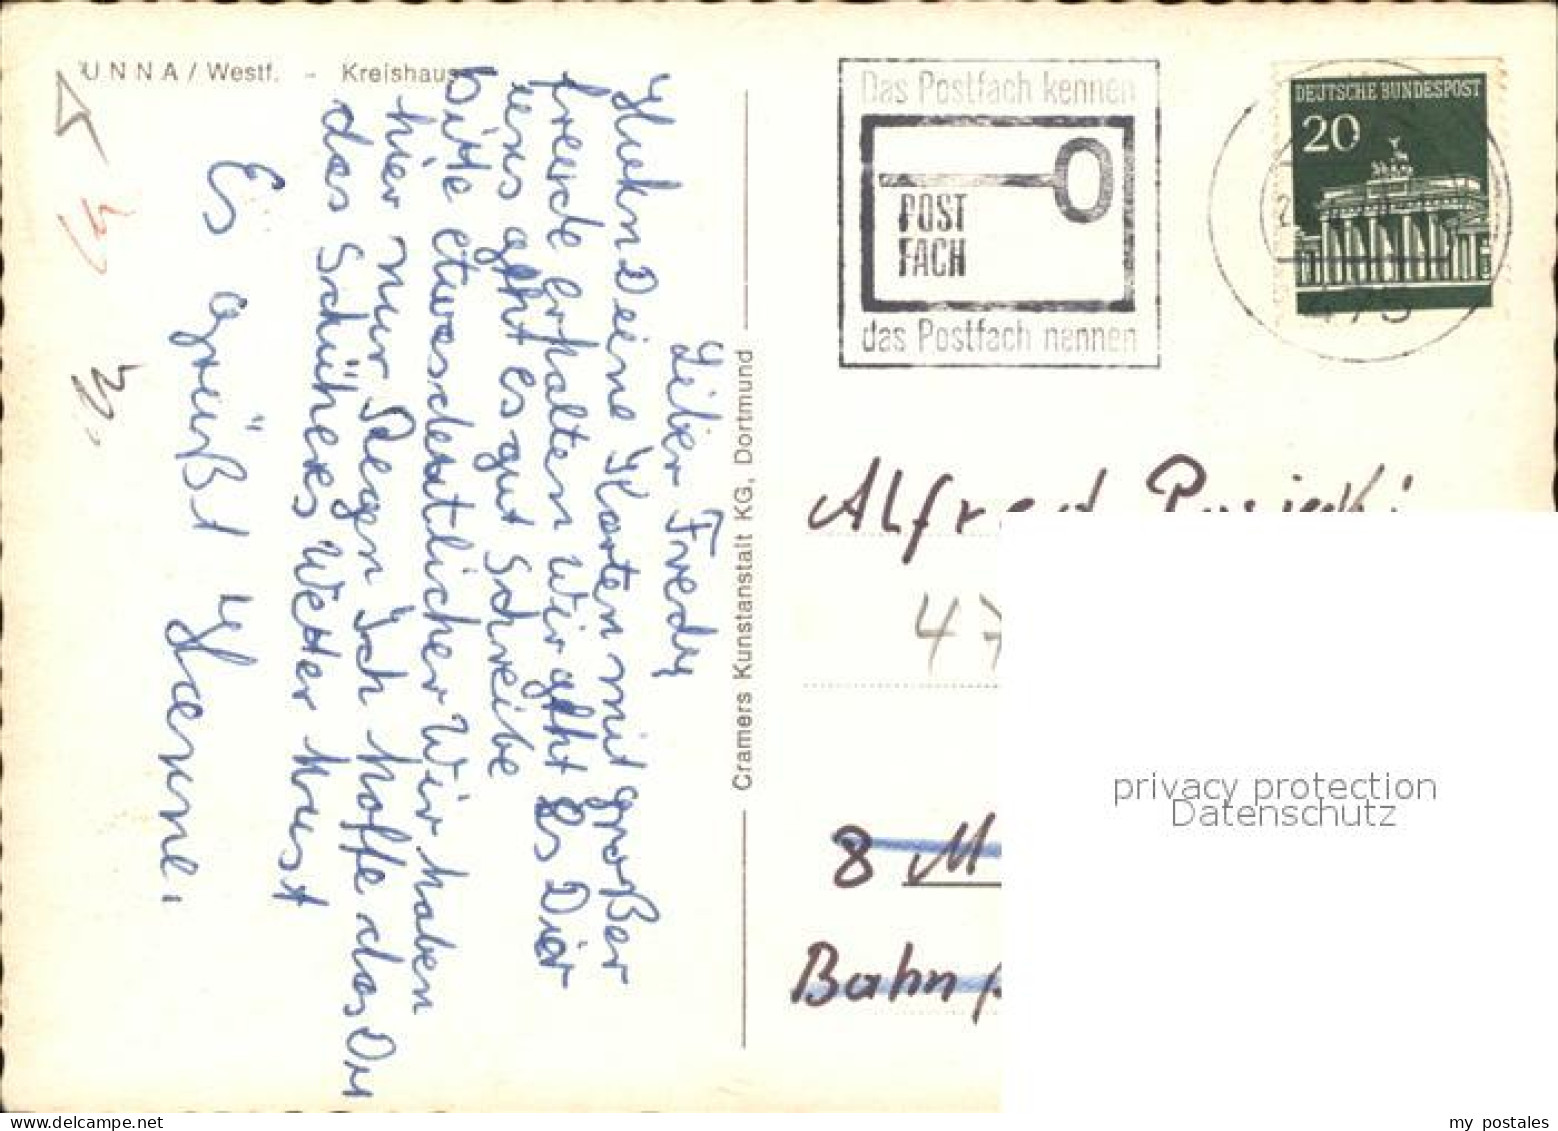 UNNA / Westf. - Kreishaus
Lieber Fredy
Deine Karten mit großer
freude erhalten Wir geht es Dir
uns geht es gut Schreibe
bitte etwas deutlicher Wir haben
hier nur Regen Ich hoffe das Du
das Schüheres Wetter hast
Es grüßt
Cramers Kunstanstalt KG, Dortmund
Das Postfach kennen
POST
FACH
das Postfach nennen
DEUTSCHE BUNDESPOST
20
475
Alfred
47
8 M
Bahn
privacy protection
Datenschutz
www.delcampe.net
my_postales